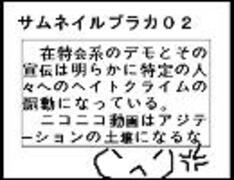 サムネイルブラカ02
在特会系のデモとその
宣伝は明らかに特定の人
々へのヘイトクライムの
扇動になっている。
ニコニコ動画はアジテ
ーションの土壌になるな